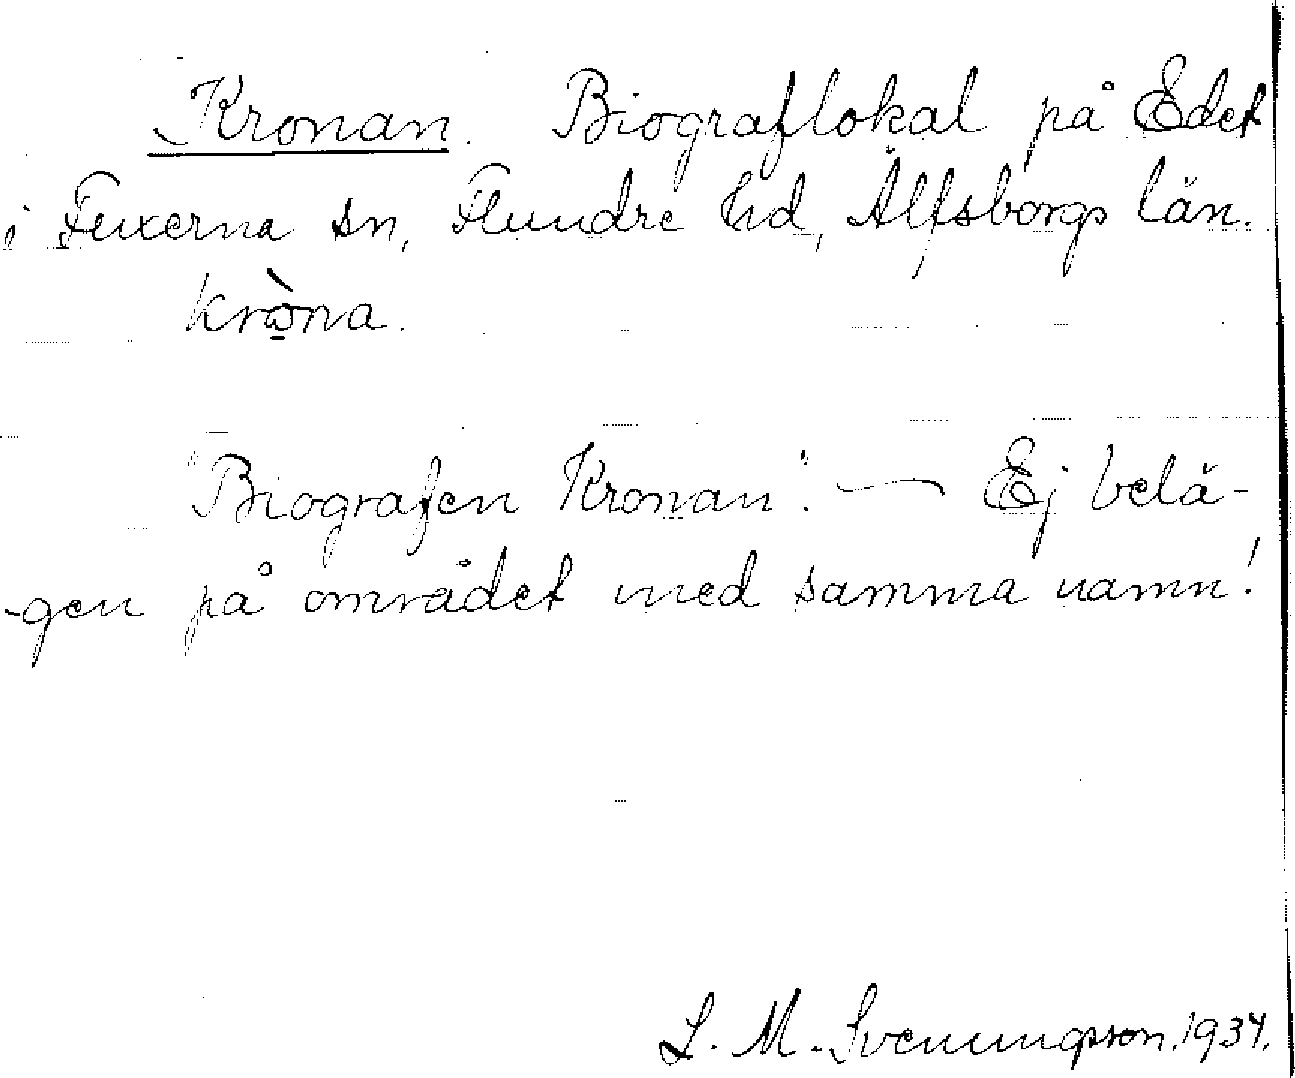 Kronan. Biograflokal på Edet
i Fuxerna sn, Flundre hd, Älfsborgs län.
krò̱na.
"Biografen Kronan". — Ej belä-
-gen på området med samma namn!
L. M. Svenungsson. 1934.